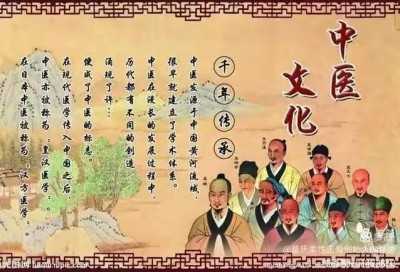 中医
文化
千年传承
中医发源于中国黄河流域，
很早就建立了学术体系。
中医在漫长的发展过程中
历代都有不同的创造，
涌现了许…
使成了中医的标志。
在现代医学传入中国之后，
中医亦被称为“皇汉医学”；
在日本中医被称为“汉方医学